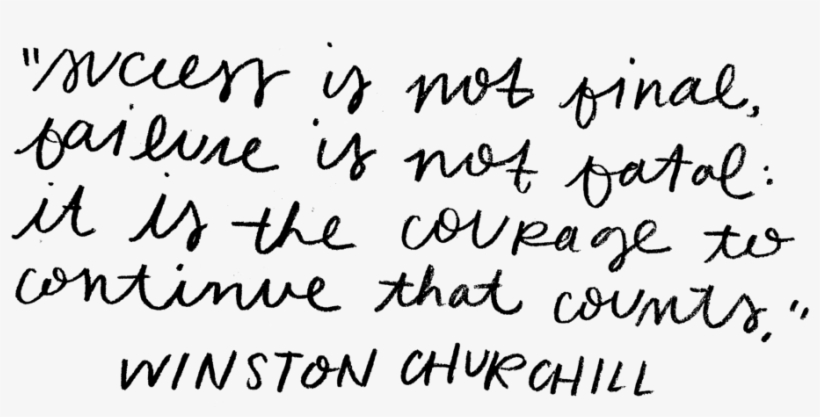 "success is not final,
failure is not fatal:
it is the courage to
continue that counts."
WINSTON CHURCHILL